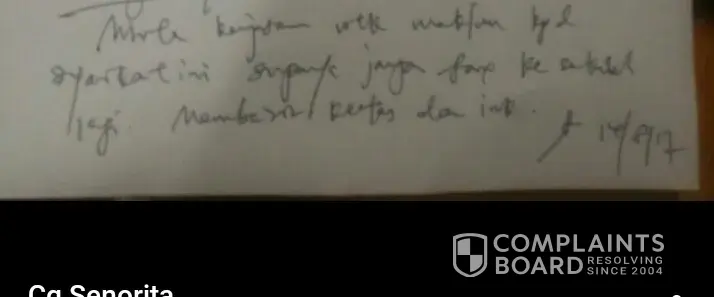 kerjasama utk maklum kpd
syarikat ini supaya jangan fax ke sekolah
lagi. Membazir kertas dan ink.
14/8/17
COMPLAINTS
BOARD RESOLVING
SINCE 2004
Cg Senorita